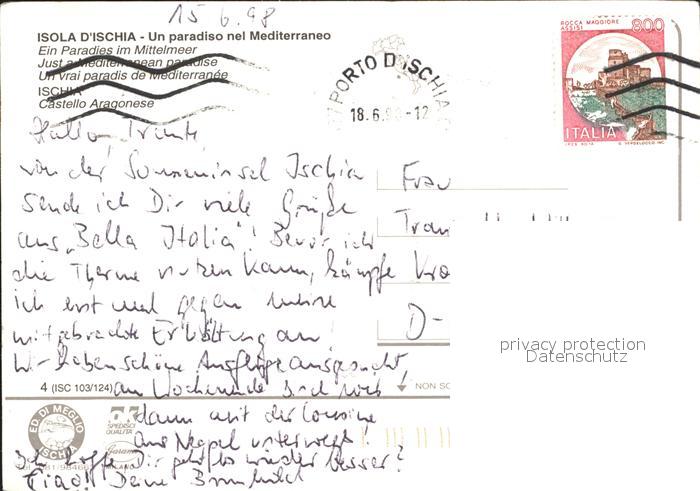 15.6.98
ISOLA D'ISCHIA - Un paradiso nel Mediterraneo
Ein Paradies im Mittelmeer
Just a Mediterranean paradise
Un vrai paradis de Mediterranée
ISCHIA
Castello Aragonese
PORTO D'ISCHIA
18.6.98-12
ROCCA MAGGIORE
ASSISI
800
ITALIA
Hallo,
von der Sonneninsel Ischia
sende ich Dir viele Grüße
aus „Bella Italia"! Bevor ich
die Therme nutzen kann, kämpfe
ich erst mal gegen meine
mitgebrachte Erkältung an!
Wir haben schöne Ausflüge ausgesucht,
am Wochenende sind wir
dann mit der Cousine
aus Neapel unterwegs!
Ich hoffe, Dir geht es wieder besser?
Ciao! Deine
Frau
D-
privacy protection
Datenschutz
4 (ISC 103/124)
NON SC
ED. DI MEGLIO
ISCHIA
ok
SPEDISCI
QUALITÀ